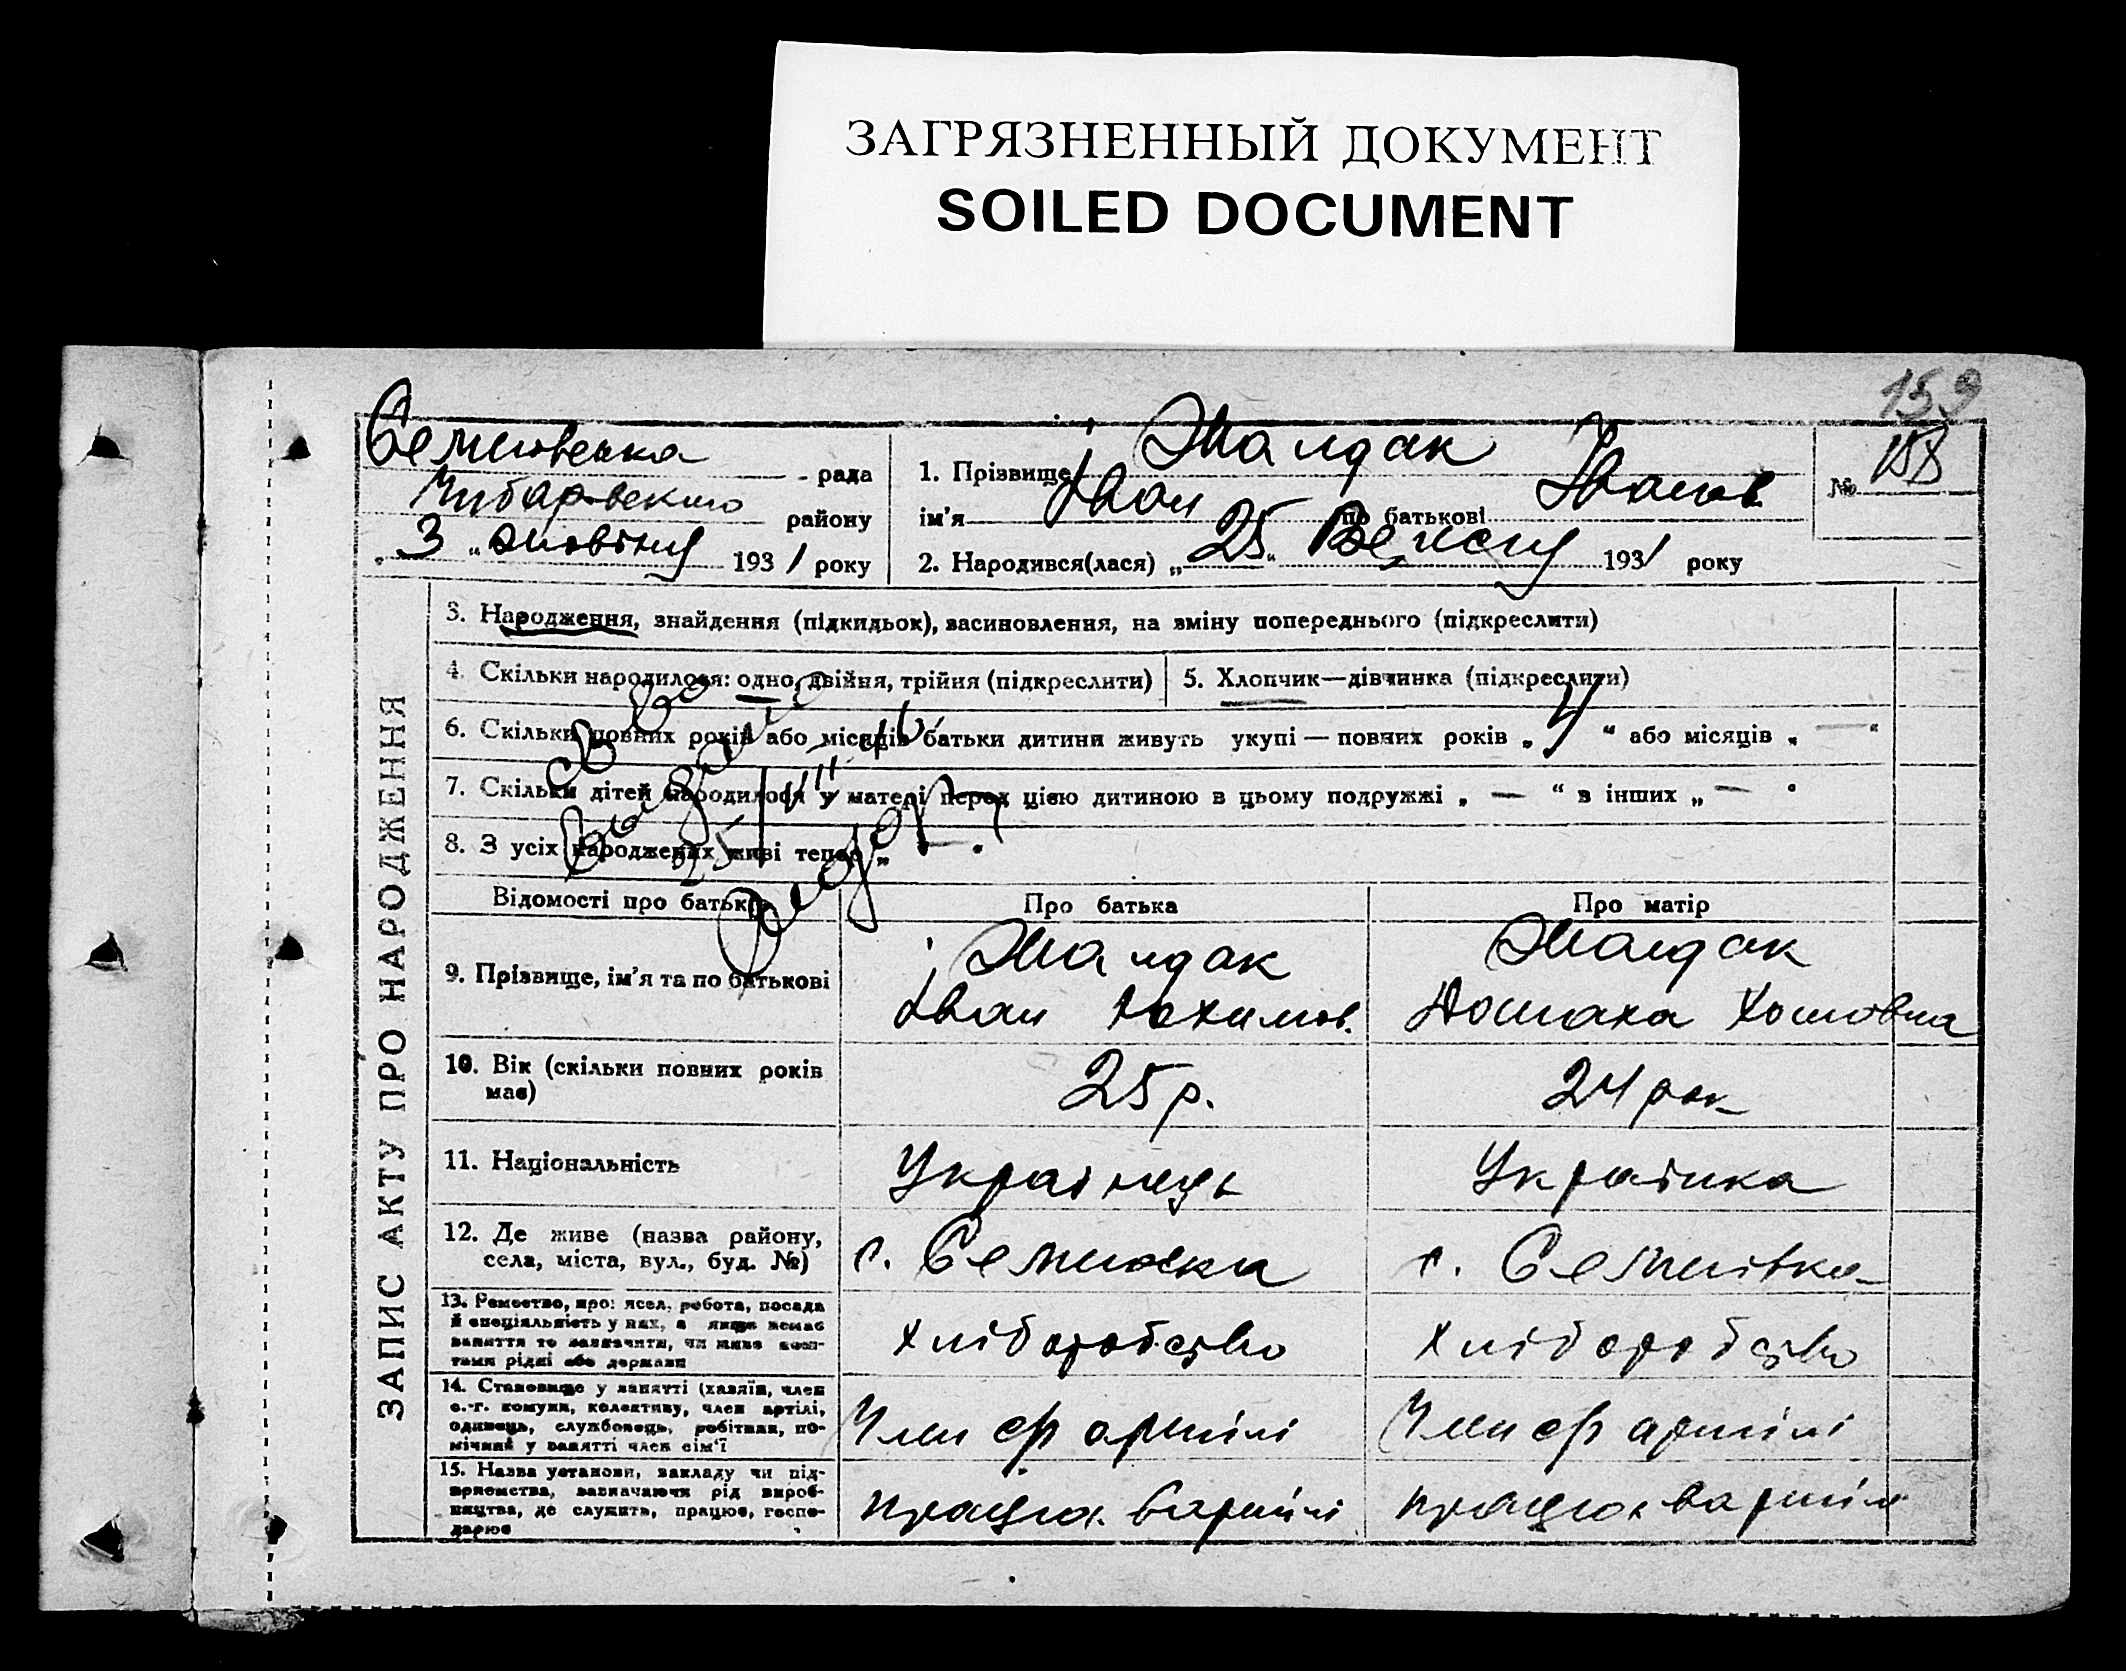 ЗАГРЯЗНЕННЫЙ ДОКУМЕНТ
SOILED DOCUMENT
159
Семенівська рада
Чубарівського району
" 3 " жовтня 1931 року
1. Прізвище Жалдак
ім'я Іван по батькові Іванов.
2. Народився(лася) „ 25 " Вересня 1931 року
№ 158
ЗАПИС АКТУ ПРО НАРОДЖЕННЯ
3. Народження, знайдення (підкидьок), засиновлення, на зміну попереднього (підкреслити)
4. Скільки народилося: одно, двійня, трійня (підкреслити)
5. Хлопчик—дівчинка (підкреслити)
6. Скільки повних років або місяців батьки дитини живуть укупі — повних років „ 4 " або місяців „ — "
7. Скільки дітей народилося у матері перед цією дитиною в цьому подружжі „ — " в інших „ — "
8. З усіх народжених живі тепер „ — "
Св во
Выдано
Відомості про батьків
Про батька
Про матір
9. Прізвище, ім'я та по батькові
Жалдак
Іван Юхимов.
Жалдак
Домаха Хомовна
10. Вік (скільки повних років має)
25 р.
24 рок
11. Національність
Українець
Українка
12. Де живе (назва району, села, міста, вул., буд. №)
с. Семенівка
с. Семенівка
13. Ремество, про: ясел, робота, посада й спеціяльність у них, а якщо немає заняття то зазначити, чи живе коштами рідні або держави
Хліборобство
Хліборобство
14. Становище у занятті (хазяїн, член с.-г. комуни, колективу, член артілі, одинець, службовець, робітник, помічний у занятті член сім'ї
Член с/г артілі
Член с/г артілі
15. Назва установи, закладу чи підприємства, зазначаючи рід виробництва, де служить, працює, господарює
працює в артілі
працює в артілі